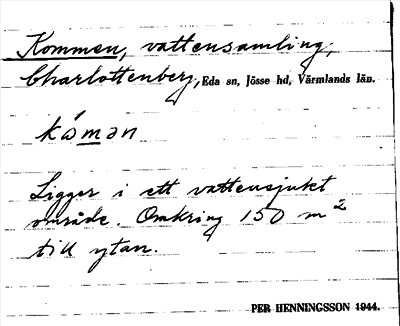 Kommen, vattensamling,
Charlottenberg, Eda sn, Jösse hd, Värmlands län.
kåmən
Ligger i ett vattensjukt
område. Omkring 150 m²
till ytan.
PER HENNINGSSON 1944.